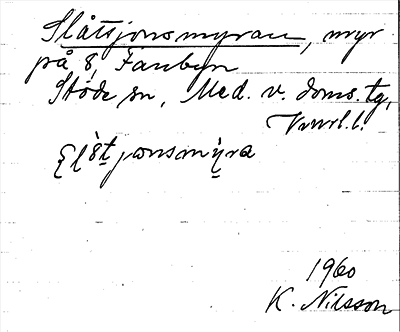 Slåtsjonsmyran, myr
på 8, Fanbyn
Stöde sn, Med. v. doms. tg,
Vnrrl. l.
1960
K. Nilsson